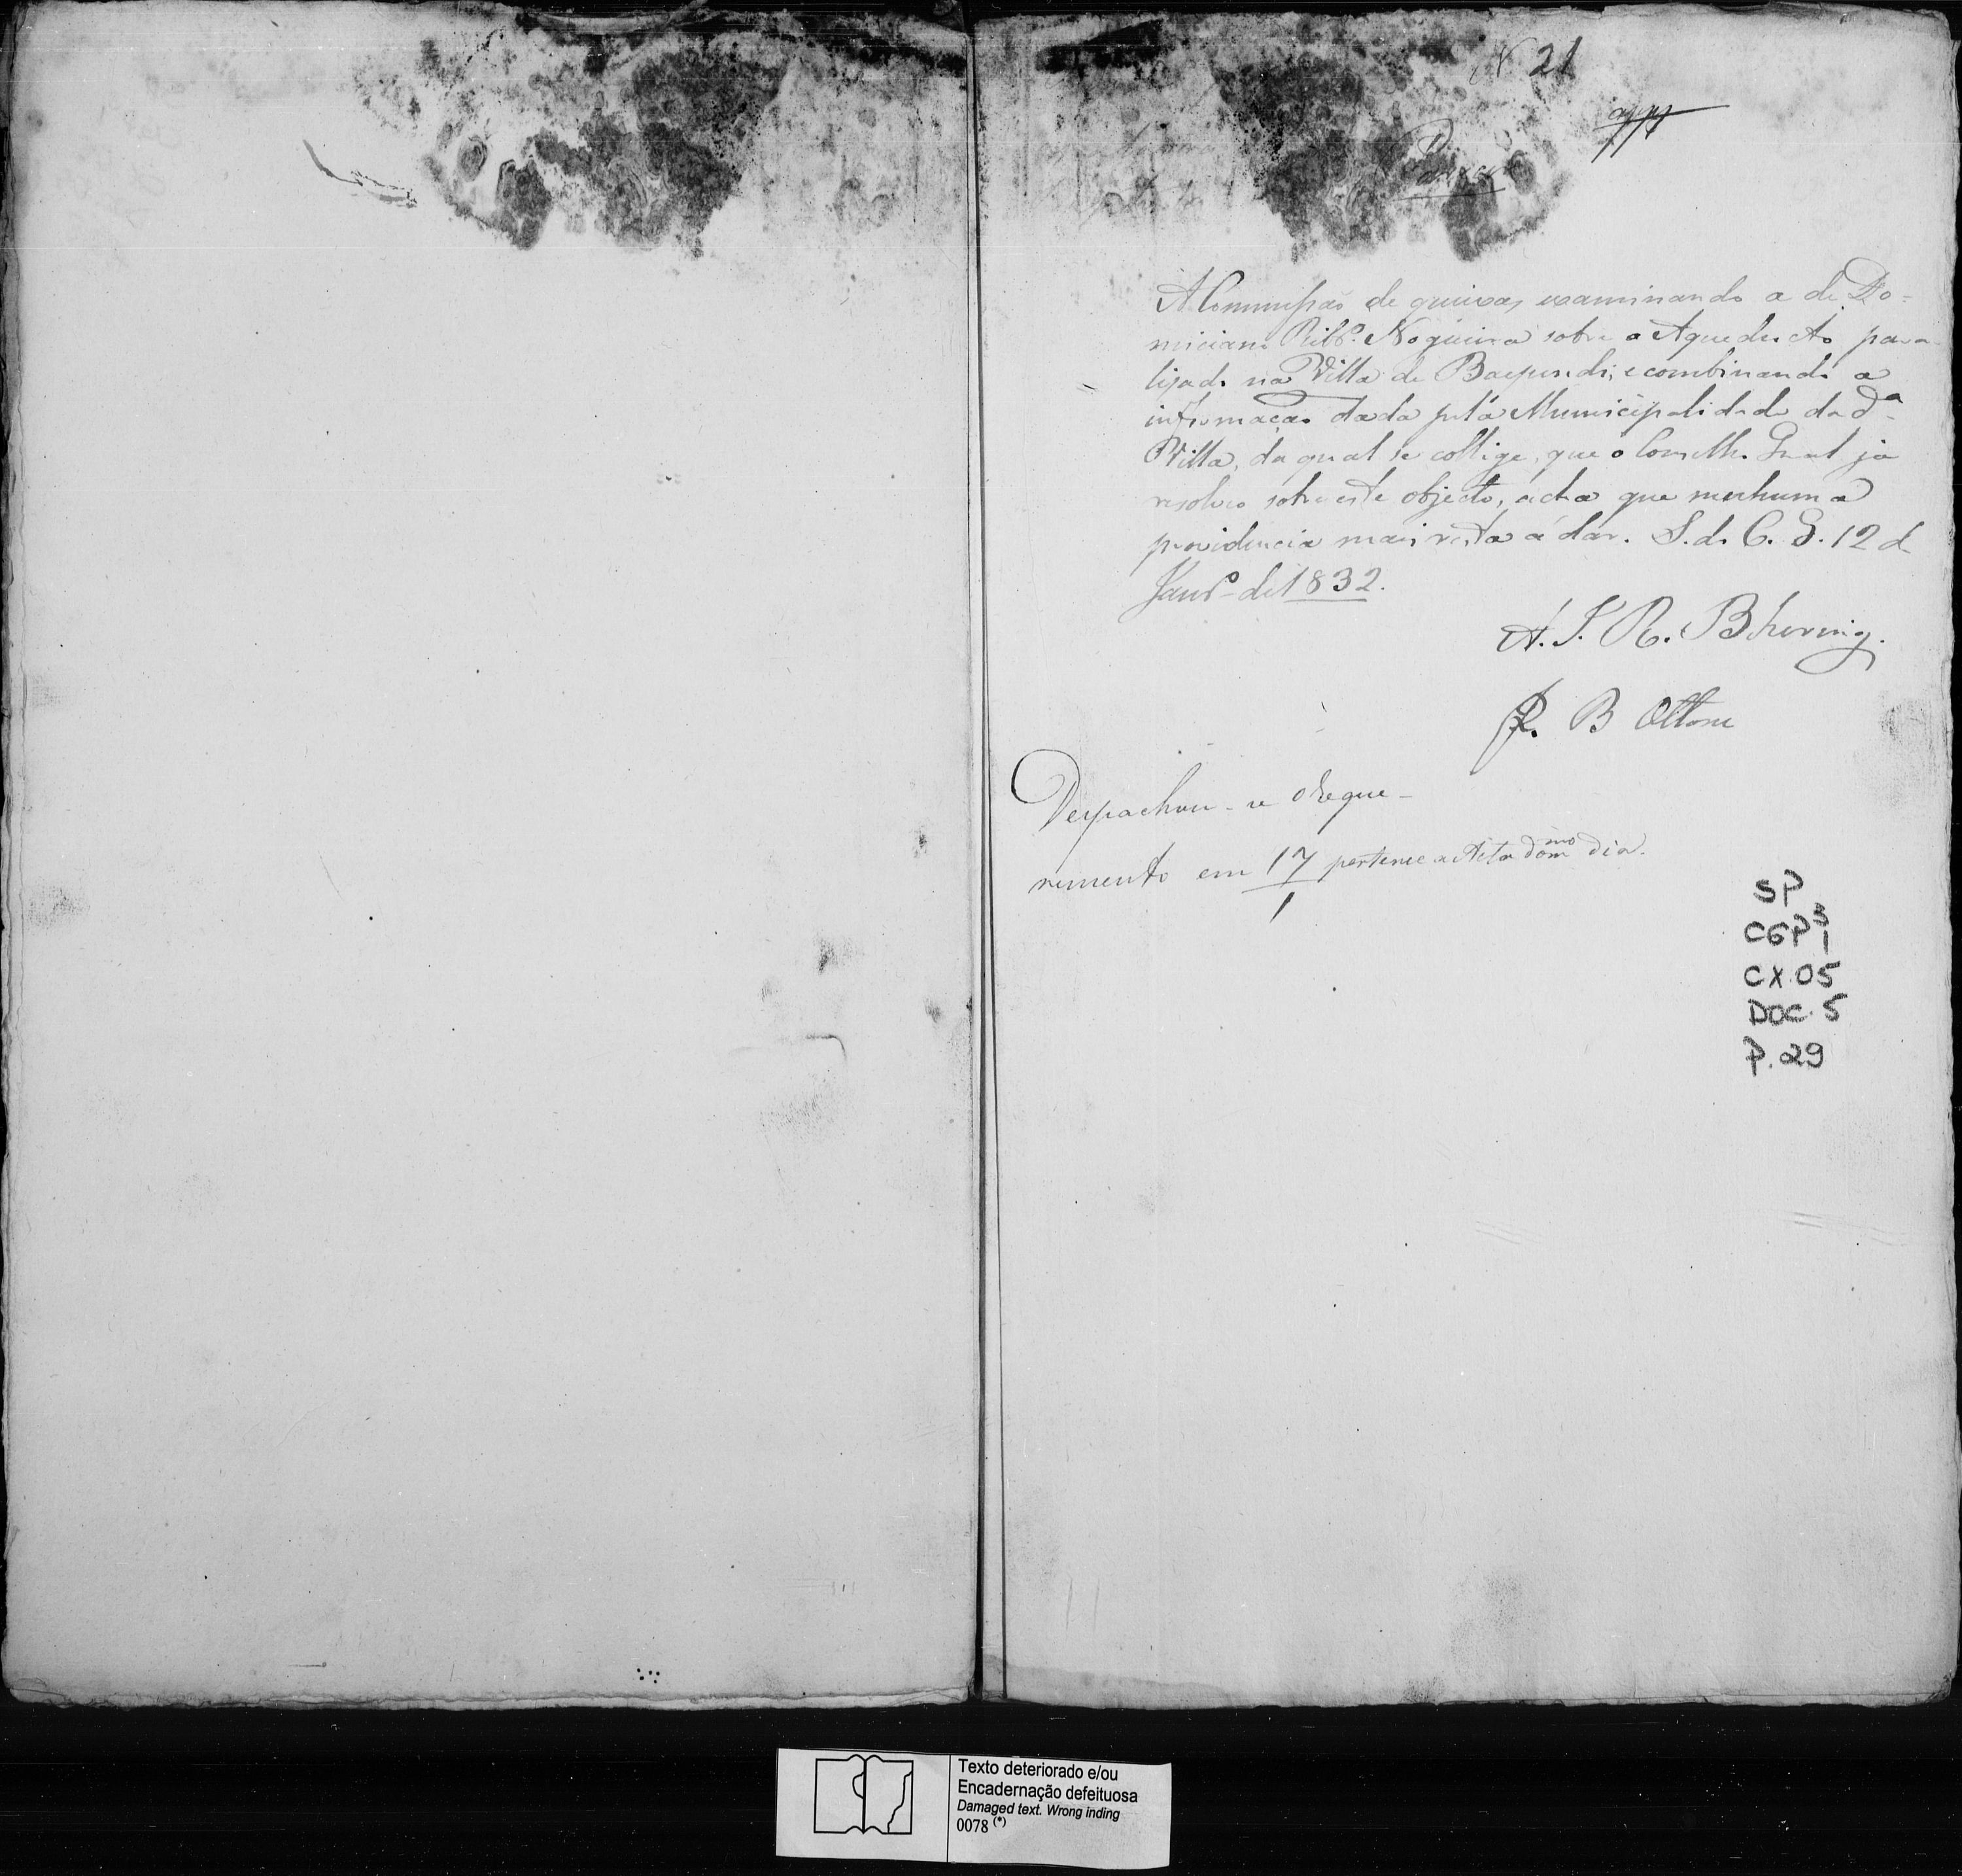 N 21
app
Parecer
A Commissão de queixas, examinando a de Do=
miciano Ribr.º Nogueira sobre o Aqueducto para
lisado na Villa de Baependi, e combinando a
informação dada pela Municipalidade da d.ª
Villa, da qual se collige, que o Conselho Geral já
resolveo sobre este objecto, acha que nenhuma
providencia mais resta a dar. S. do C. G. 12 de
Janr.º de 1832.
A. J. R. Bhering.
J. B Ottoni
Despachou-se o Reque-
rimento em 17/1 pertence a Acta do mmo dia.
SP
CGP3 1
CX.05
DOC. 5
P. 29
Texto deteriorado e/ou
Encadernação defeituosa
Damaged text. Wrong inding
0078 (*)